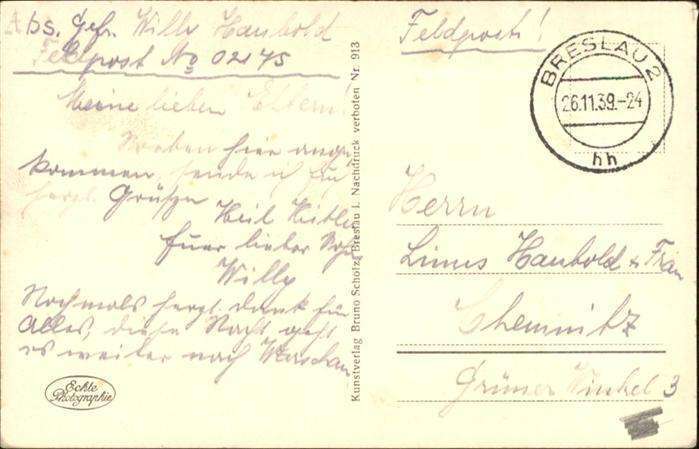 Abs. Gefr. Willy Haubold
Feldpost No 02175
Meine lieben Eltern!
Soeben hier ange
kommen, sende ich
herzl. Grüße
Heil Hitler
Euer lieber Sohn
Willy
Nochmals herzl. Dank für
Alles, diese Nacht geht
es weiter nach Warschau
Echte
Photographie
Kunstverlag Bruno Scholz, Breslau I. Nachdruck verboten Nr. 913
Feldpost!
BRESLAU 2
26.11.39.-24
hh
Herrn
Linus Haubold & Frau
Chemnitz
Grüner Winkel 3